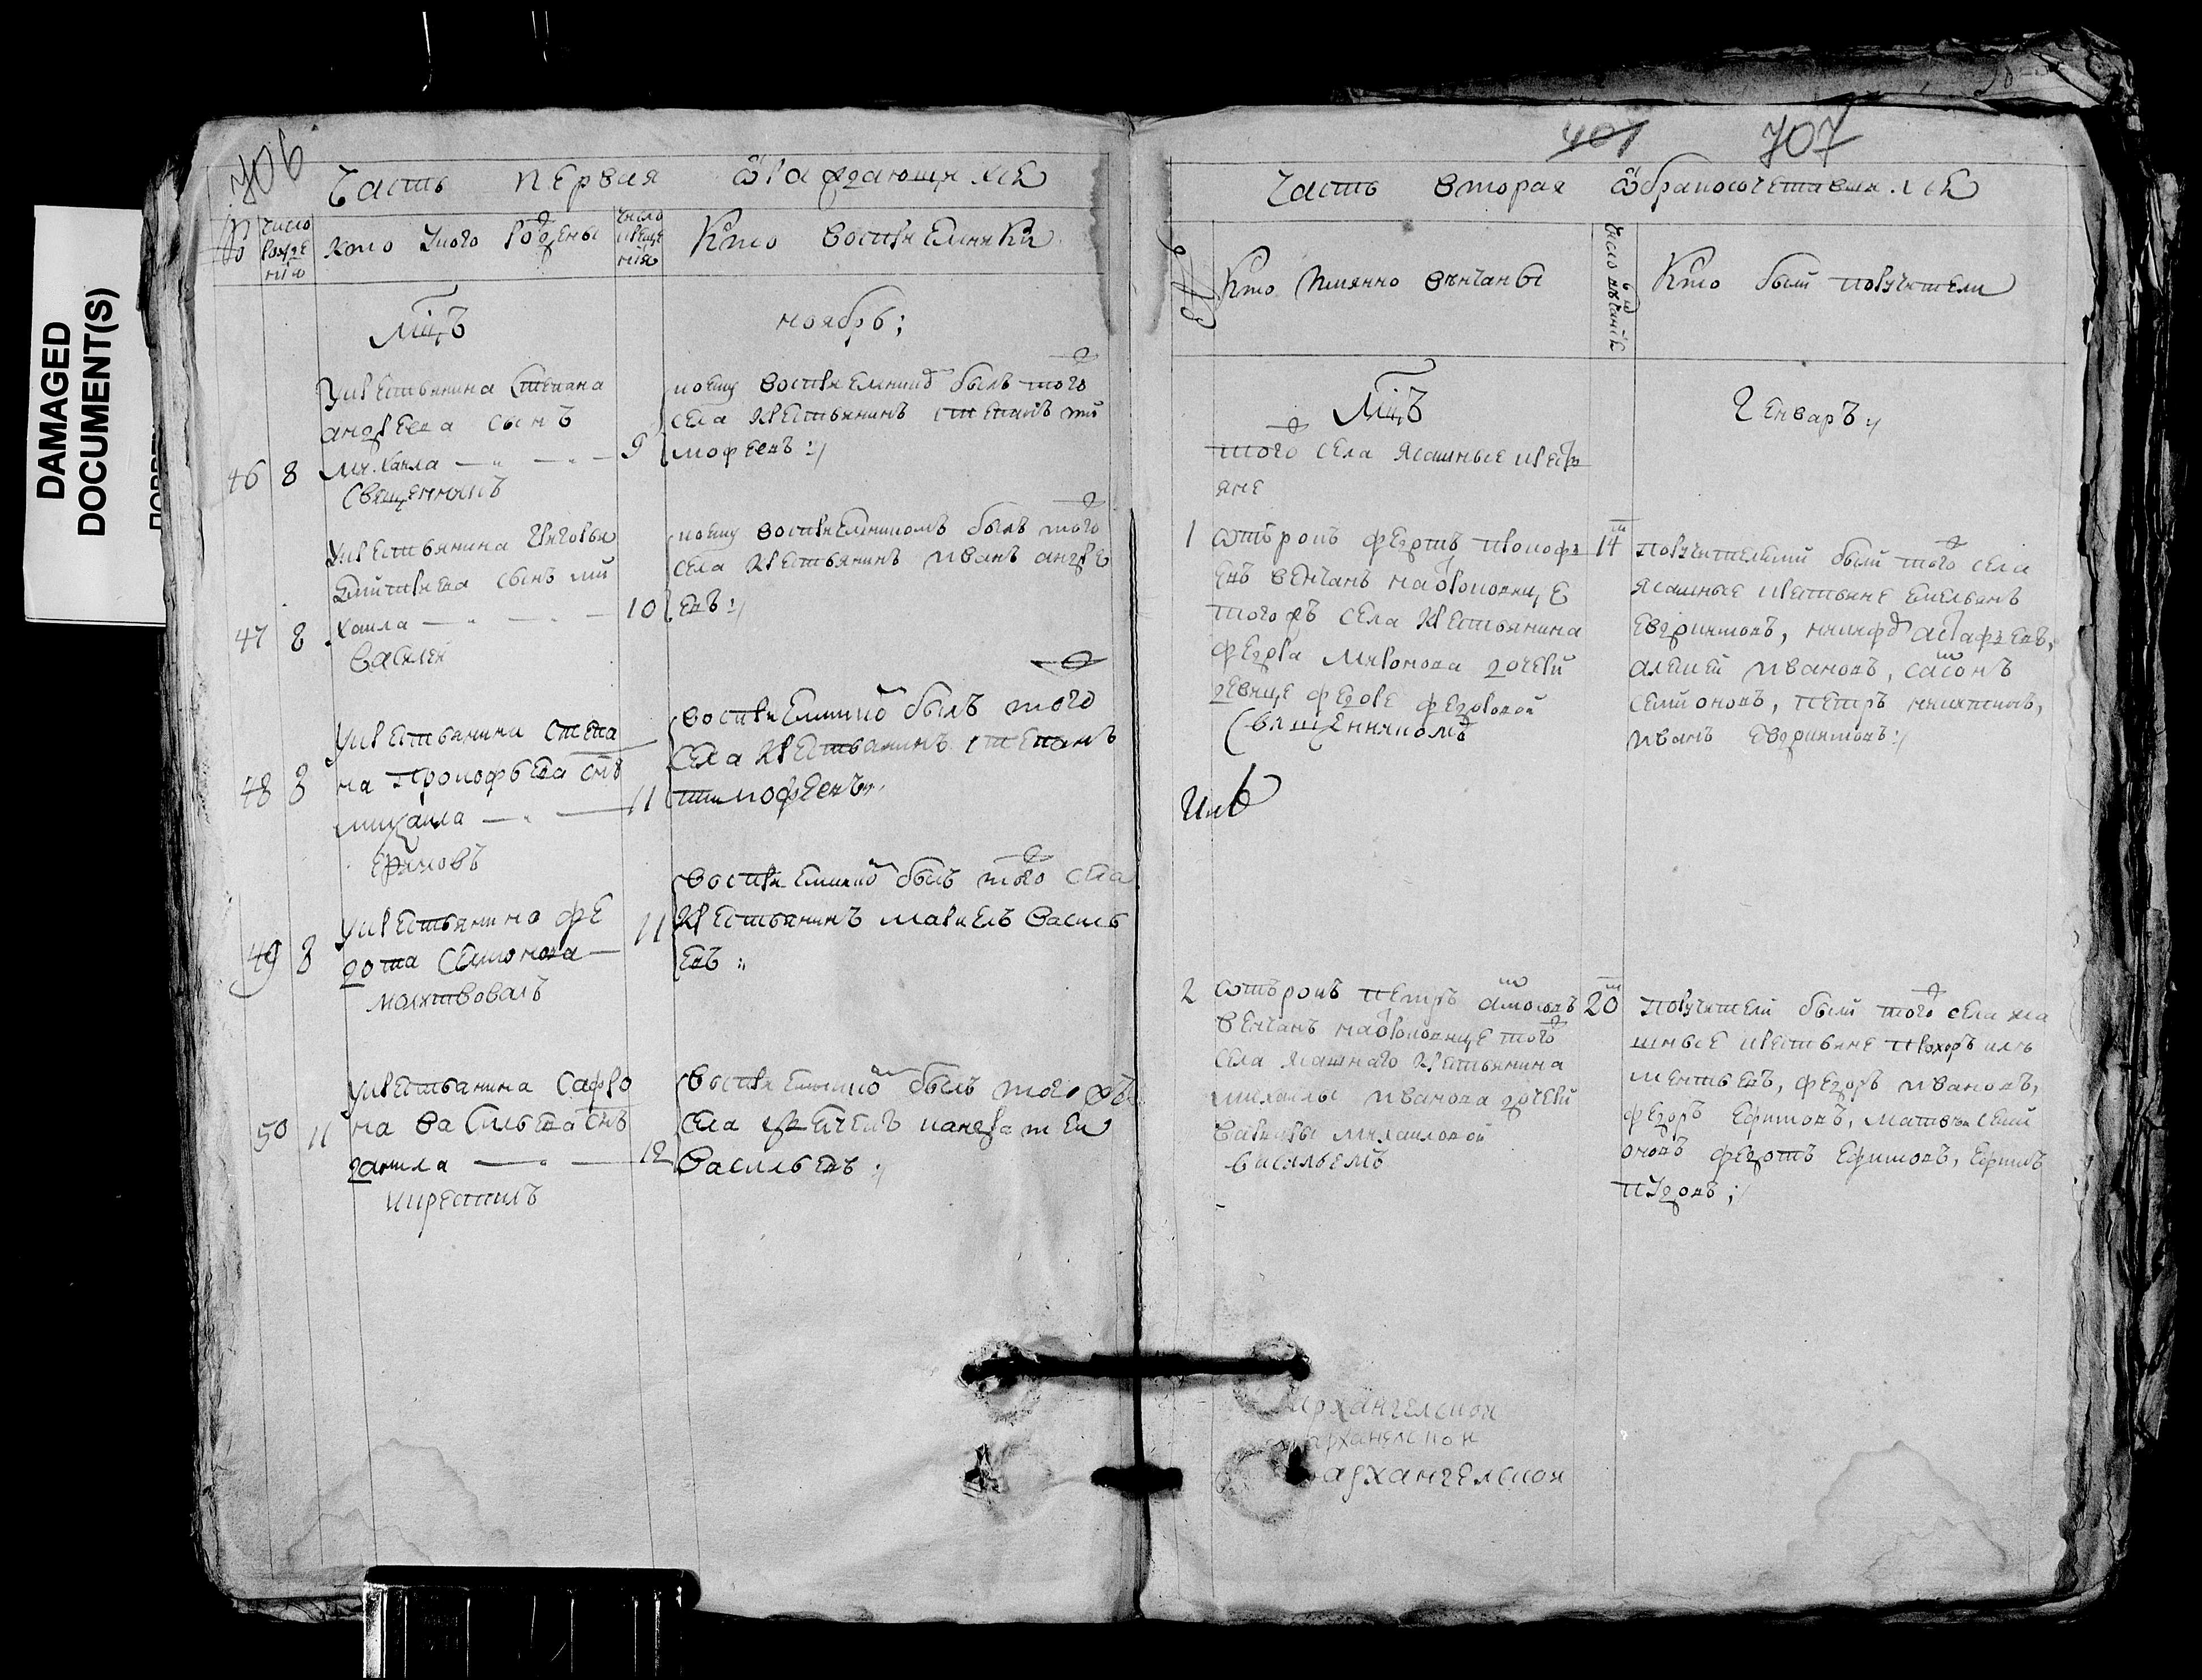 DAMAGED
DOCUMENT(S)
706
Часть первая ѿ раждающихся
№
число рожде нїю
кого у кого рождены
число креще нїя
Кто восприемники
Мцъ
ноябрь;
46 8
У крестьянина Степана
андреева сынъ
Михаила
9
Священникъ
коему восприемникѡ былъ того
села крестьянинъ степанъ ти
мофеевъ
47 8
У крестьянина Григорья
дмитриева сынъ ми
хаила
10
Василей
коему восприемникомъ былъ того
села крестьянинъ иванъ андре
евъ
48 8
У крестьянина степа
на прокофьева снъ
михаила
11
Ефимовъ
восприемникѡ былъ того
села крестьянинъ степанъ
тимофеевъ
49 8
У крестьянина фе
дота семонова
11
молитвовалъ
восприемникѡ былъ того села
крестьянинъ маркелъ василь
евъ
50 11
У крестьянина сафро
на васильева снъ
данила
12
и крестилъ
восприемникѡ былъ того жъ
села
васильевъ
401 707
Часть вторая ѿ бракосочетавш.хся
№
Кто имянно венчаны
число венчанїй
Кто были поручители
Мцъ
Генваръ
того села ясашные крестья
яне
1
отърокъ федотъ прокофь
евъ венчанъ на отроковице
того жъ села крестьянина
федора миронова дочери
девице федоре федоровой
священникомъ
14
поручителями были того села
ясашные крестьяне емельянъ
евдокимовъ, астафьевъ,
алексей ивановъ, самсонъ
семионовъ, петръ никитинъ,
иванъ евдокимовъ
2
отърокъ петръ
венчанъ на отроковице того
села ясашнаго крестьянина
михаилы иванова дочери
варвары михаиловой
василиемъ
20
поручители были того села яса
шные крестьяне прохоръ кле
ментьевъ, федоръ ивановъ,
федоръ ефимовъ, матвей семи
оновъ федотъ ефимовъ, ефимъ
архангелской
архангелской
архангелской